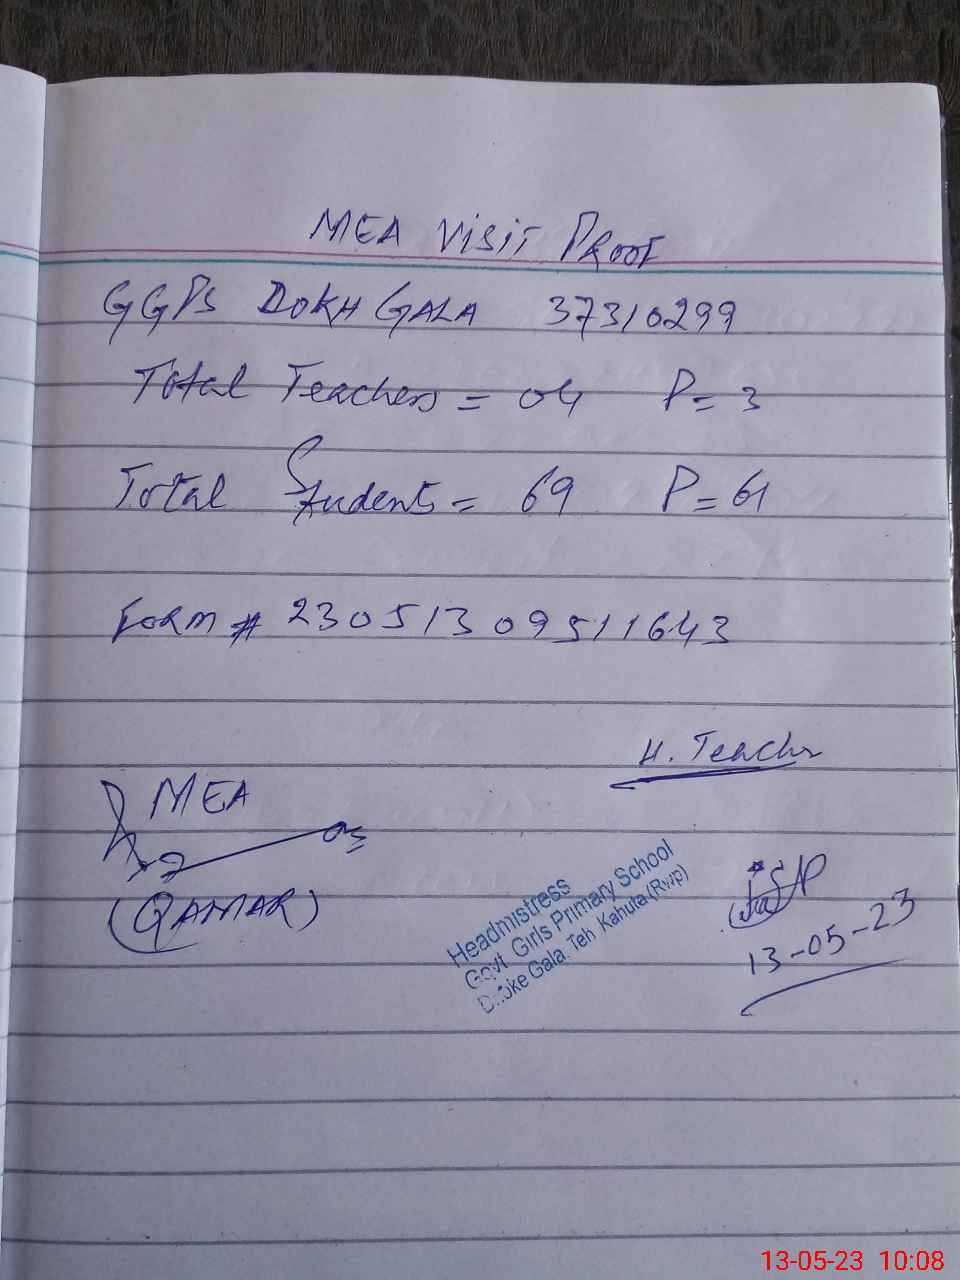 MEA VISIT PROOF
GGPS DOKH GALA 37310299
Total Teachers = 04 P= 3
Total Students = 69 P= 61
Form # 23051309511643
H. Teacher
MEA
(QAMAR)
Headmistress
Govt Girls Primary School
Dhoke Gala. Teh Kahuta (Rwp)
13-05-23
13-05-23 10:08